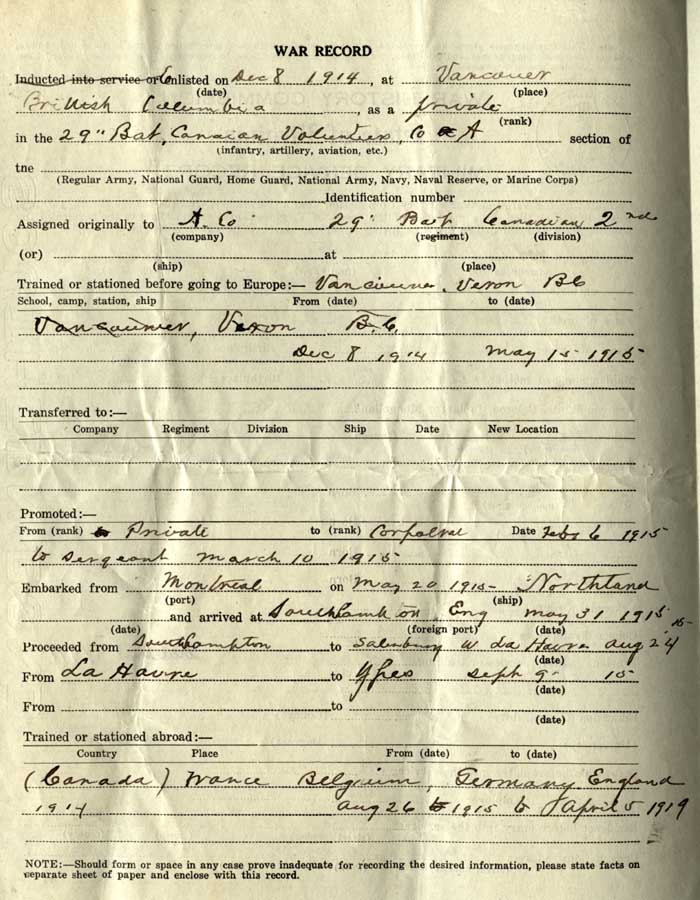 WAR RECORD
Inducted into service or Enlisted on Dec 8 1914, at Vancouver
(date) (place)
British Columbia, as a private
(rank)
in the 29" Bat, Canaian Volunteers, Co A section of
(infantry, artillery, aviation, etc.)
tne
(Regular Army, National Guard, Home Guard, National Army, Navy, Naval Reserve, or Marine Corps)
Identification number
Assigned originally to A. Co 29" Bat Canadian 2nd
(company) (regiment) (division)
(or) at
(ship) (place)
Trained or stationed before going to Europe:— Vancouver, Veron BC
School, camp, station, ship From (date) to (date)
Vancouver, Vexon B.C.
Dec 8 1914 May 15 1915
Transferred to:—
Company Regiment Division Ship Date New Location
Promoted:—
From (rank) Private to (rank) Corpolral Date Feb 6 1915
to Sergeant March 10 1915
Embarked from Montreal on May 20 1915 Northland
(port) (ship)
and arrived at Southhamton, Eng May 31 1915
(date) (foreign port) (date)
Proceeded from Southhampton to Salesbury La Havre Aug 24 15
(date)
From La Havre to Ypes Seph 9 15
(date)
From to
(date)
Trained or stationed abroad:—
Country Place From (date) to (date)
(Canada) France Belgium, Germany England
1914 Aug 26 1915 to April 5 1919
NOTE:—Should form or space in any case prove inadequate for recording the desired information, please state facts on
separate sheet of paper and enclose with this record.